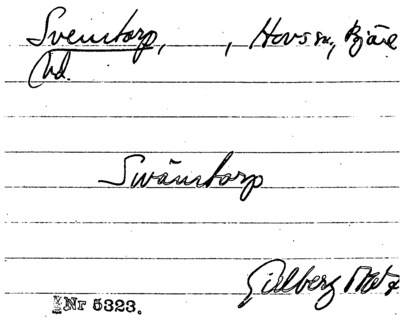 Svenstorp, , Hovs sn, Bjäre
hd.
Swänstorp
Gillberg Matz
Nr 5323.